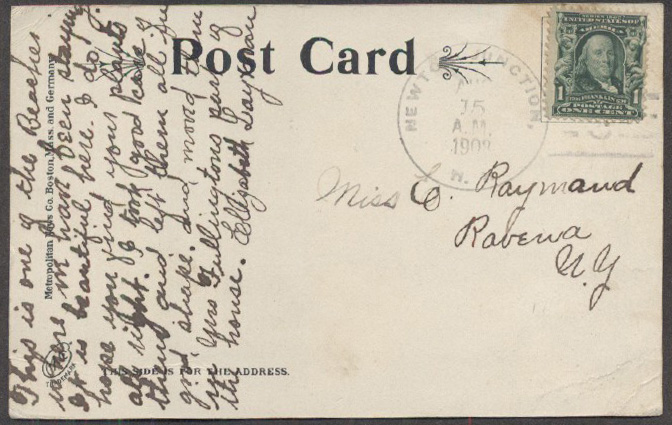 Post Card
SERIES 1902
UNITED STATES OF
AMERICA
1 1
FRANKLIN
POSTAGE
ONE CENT
NEWTON JUNCTION,
15
A.M.
1908
Miss C. Raymond
Ravena
N.Y
This is one of the Beaches
where we have been staying
It is beautiful here. I do
hope you find your plants
all right. I took good care of
them and left them all in
good shape. and moved them
in Mrs Fullingtons part of
the house. Elizabeth Layman
Metropolitan News Co. Boston, Mass. and Germany
THIS SIDE IS FOR THE ADDRESS.